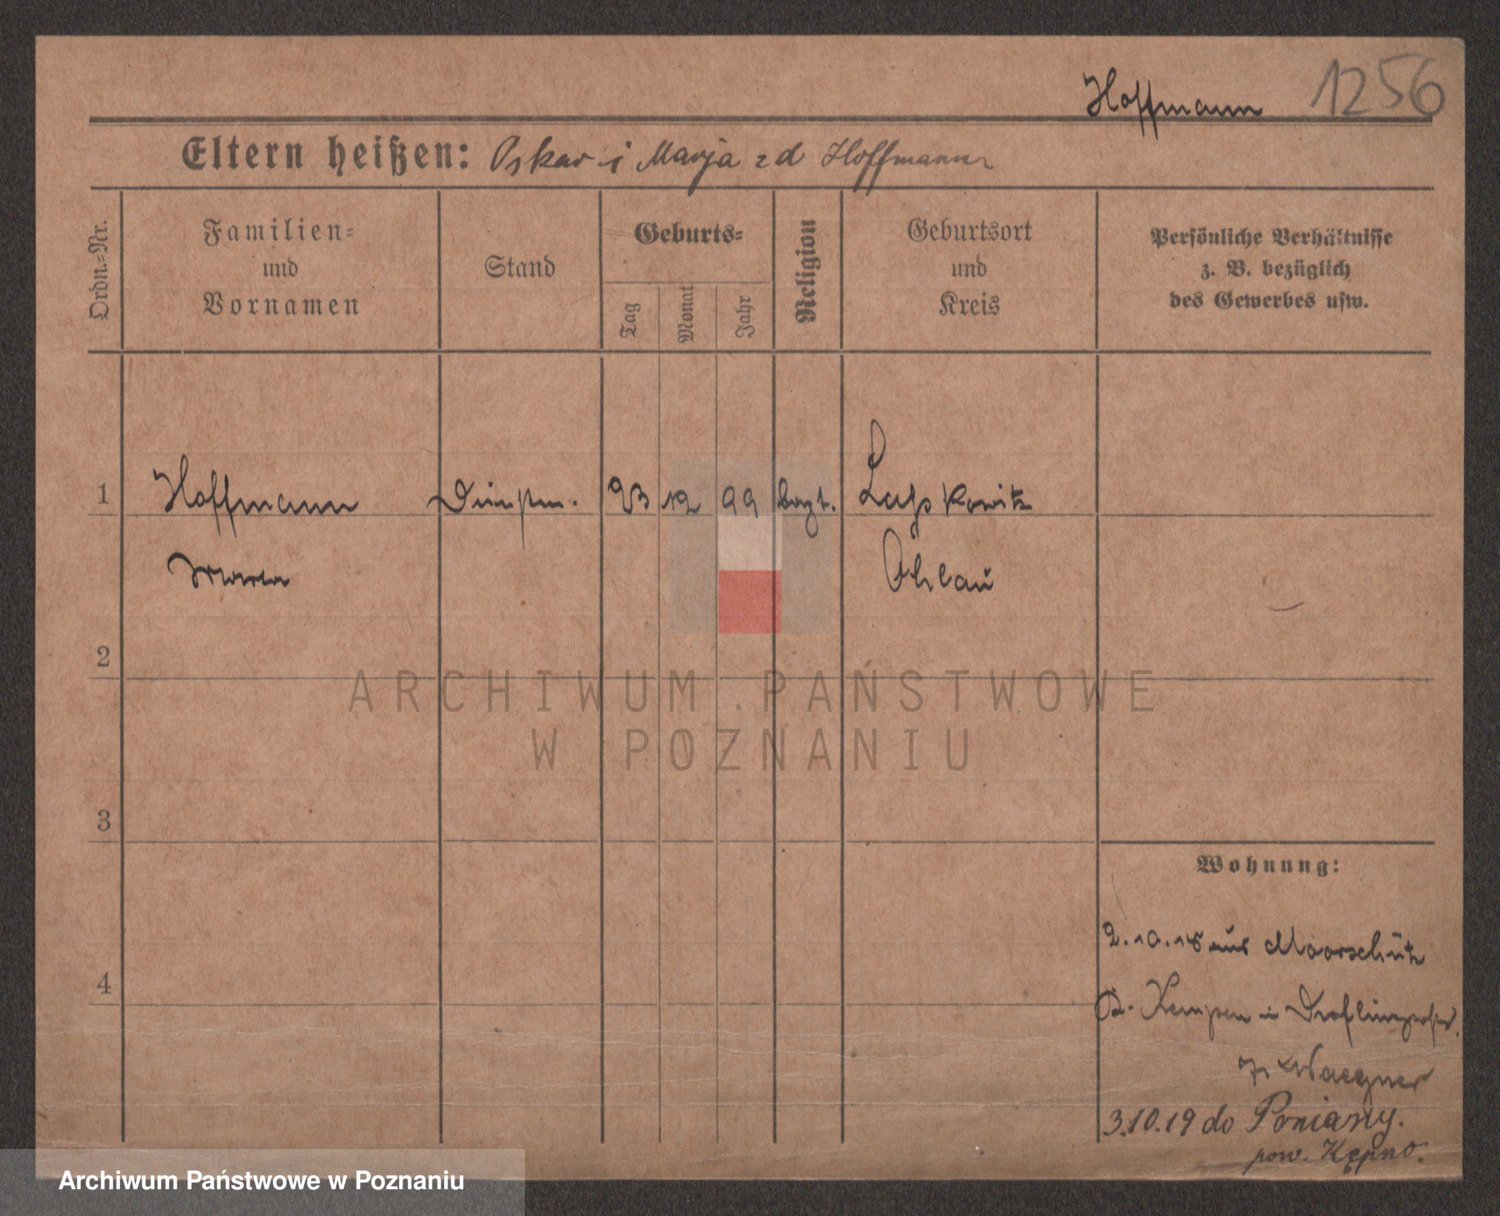 Hoffmann 1256
Eltern heißen: Oskar i Marja zd Hoffmann
Ordn.=Nr.
Familien=
und
Vornamen
Stand
Geburts=
Tag
Monat
Jahr
Religion
Geburtsort
und
Kreis
Persönliche Verhältnisse
z. B. bezüglich
des Gewerbes usw.
1 Hoffmann 23 12 99 Laskowitz
Ohlau
2
ARCHIWUM PAŃSTWOWE
W POZNANIU
3
Wohnung:
2.10.18 aus
4
Kempen in
Waegner
3.10.19 do
pow. Kępno.
Archiwum Państwowe w Poznaniu